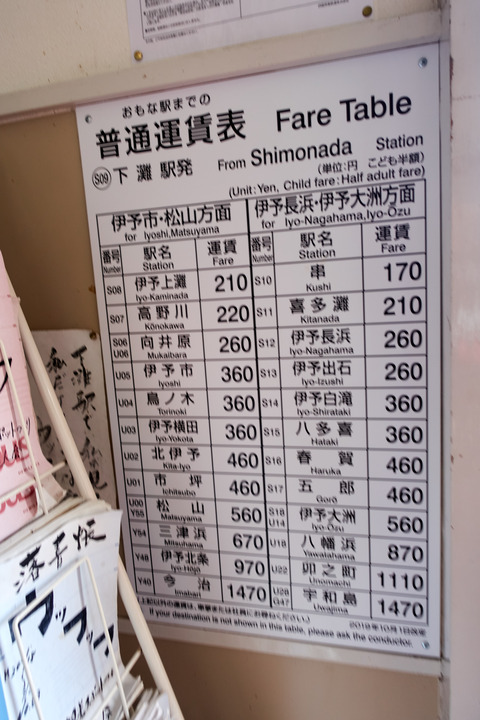 おもな駅までの
普通運賃表 Fare Table
S09 下灘 駅発 From Shimonada Station
(単位:円 こども半額)
(Unit:Yen, Child fare:Half adult fare)
伊予市・松山方面
for Iyoshi,Matsuyama
番号 Number 駅名 Station 運賃 Fare
S08 伊予上灘 Iyo-Kaminada 210
S07 高野川 Kōnokawa 220
S06 U06 向井原 Mukaibara 260
U05 伊予市 Iyoshi 360
U04 鳥ノ木 Torinoki 360
U03 伊予横田 Iyo-Yokota 360
U02 北伊予 Kita-Iyo 460
U01 市坪 Ichitsubo 460
U00 Y55 松山 Matsuyama 560
Y54 三津浜 Mitsuhama 670
Y48 伊予北条 Iyo-Hōjō 970
Y40 今治 Imabari 1470
伊予長浜・伊予大洲方面
for Iyo-Nagahama,Iyo-Ozu
番号 Number 駅名 Station 運賃 Fare
S10 串 Kushi 170
S11 喜多灘 Kitanada 210
S12 伊予長浜 Iyo-Nagahama 260
S13 伊予出石 Iyo-Izushi 260
S14 伊予白滝 Iyo-Shirataki 360
S15 八多喜 Hataki 360
S16 春賀 Haruka 460
S17 五郎 Gorō 460
S18 U14 伊予大洲 Iyo-Ōzu 560
U18 八幡浜 Yawatahama 870
U22 卯之町 Unomachi 1110
U28 G47 宇和島 Uwajima 1470
If your destination is not shown in this table, please ask the conductor.
2019年10月1日改定
落書帳